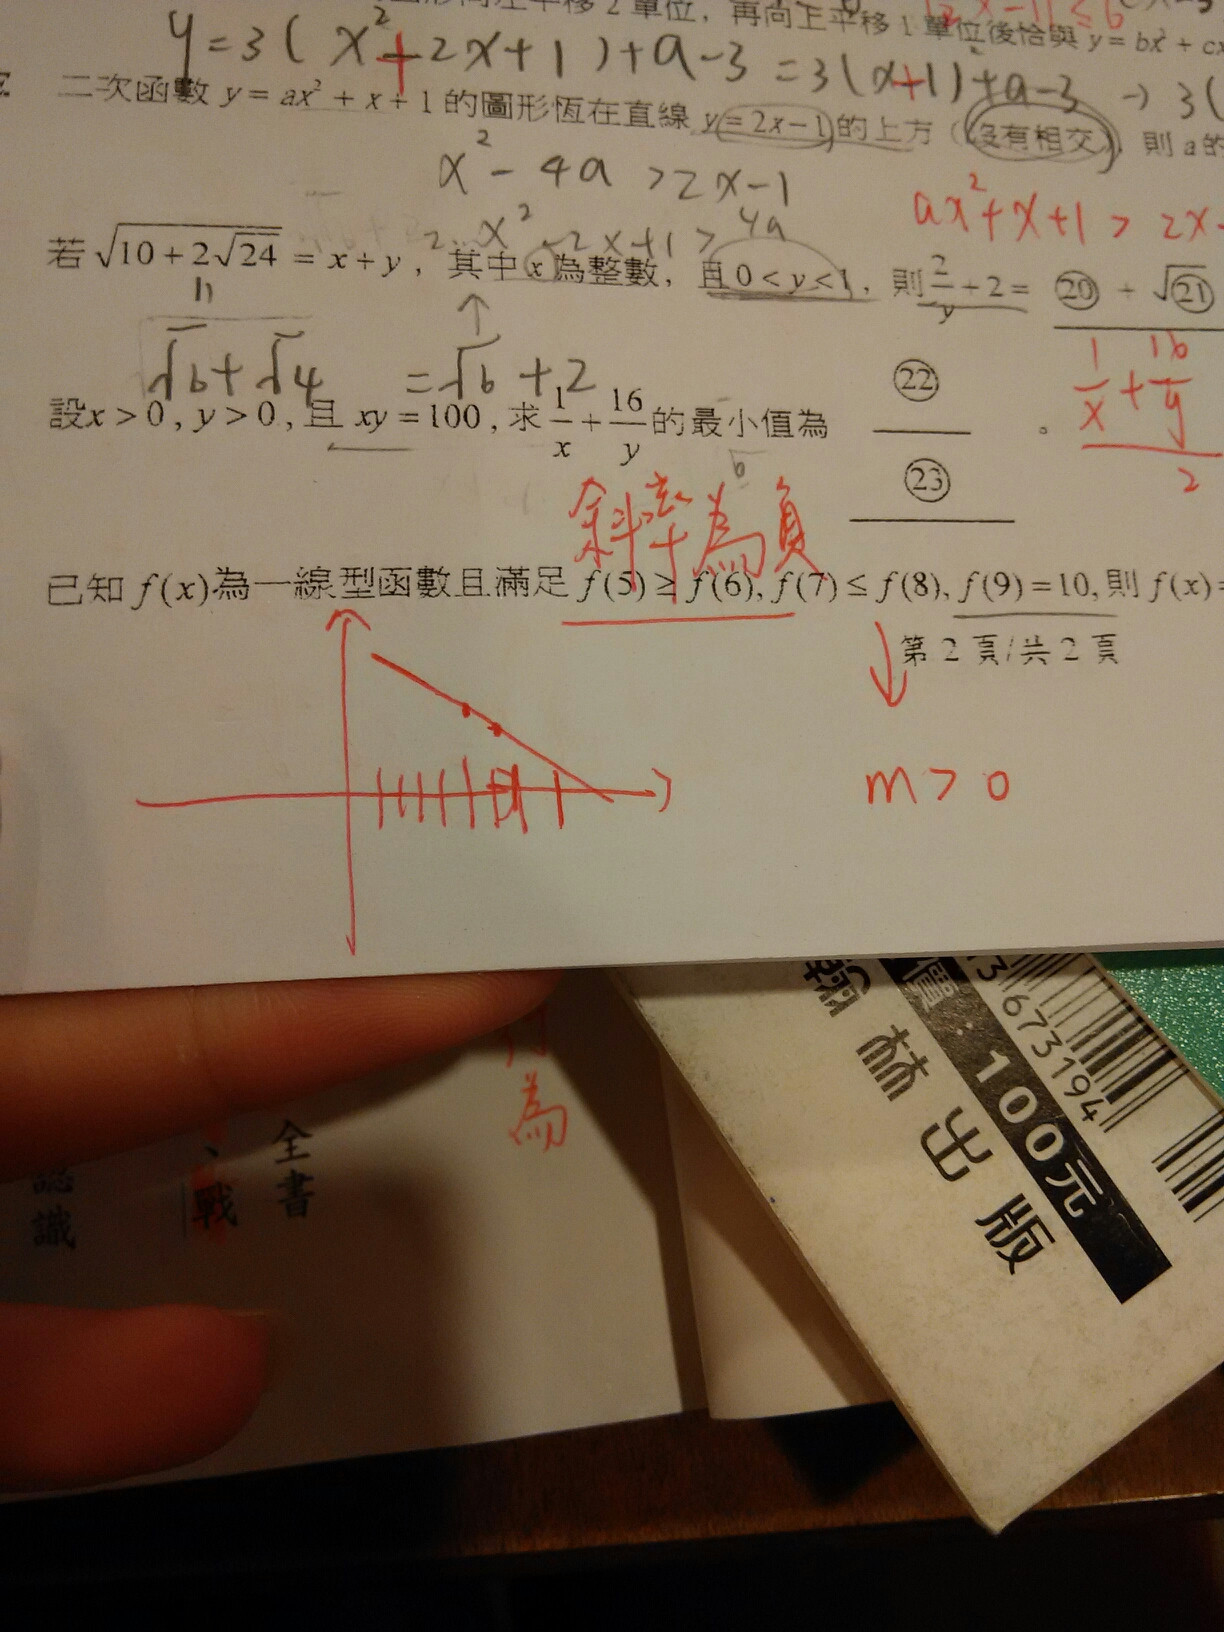 平移2單位，再向上平移1單位後恰與 y=bx²+cx
y=3(x²+2x+1)+a-3 =3(x+1)+a-3 → 3(
二次函數 y=ax²+x+1 的圖形恆在直線 y=2x-1 的上方（沒有相交），則 a 的
x²-4a>2x-1
ax²+x+1>2x-
x²-2x+1>4a
若 √(10+2√24) = x+y，其中 x 為整數，且 0<y<1，則 2/y+2= ⑳ + √㉑
√6+√4 =√6+2
㉒
1/x+16/y
2
設x>0, y>0, 且 xy=100, 求 1/x+16/y 的最小值為
㉓
斜率為負
已知 f(x) 為一線型函數且滿足 f(5)≥f(6), f(7)≤f(8), f(9)=10, 則 f(x)=
第 2 頁/共 2 頁
m>0
673194
價：100元
翰林出版
為
全書
、戰
認識